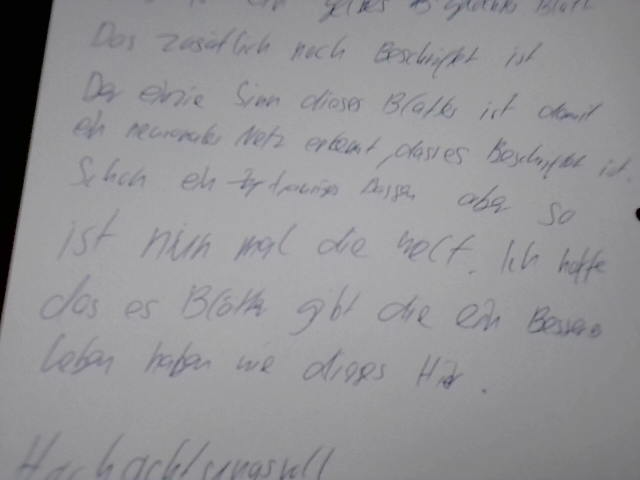 ein gelbes Blatt
Das zusätlich noch Beschriftet ist
Der einzie Sinn dieses Blattes ist damit
ein neuronales Netz erkennt, dass es Beschriftet ist.
Schon ein trauriges Dasein aber so
ist nun mal die welt. Ich hoffe
das es Blätter gibt die ein Besseres
Leben haben wie dieses Hier.
Hochachtungsvoll